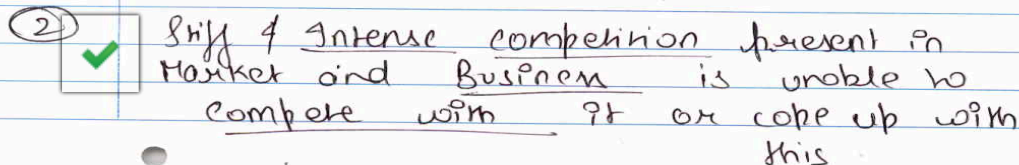 ② Stiff & Intense competition present in
Market and Business is unable to
compete with it or cope up with
this